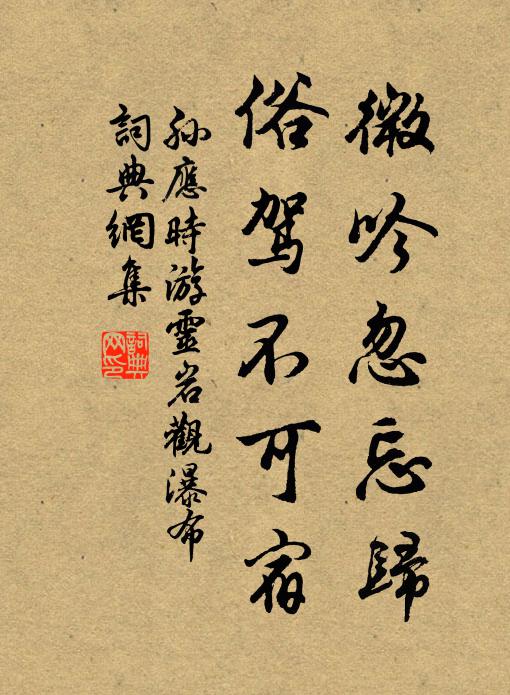 微吟忽忘歸
俗驾不可宿
孙應時游靈岩觀瀑布
詞典網集
詞典网印